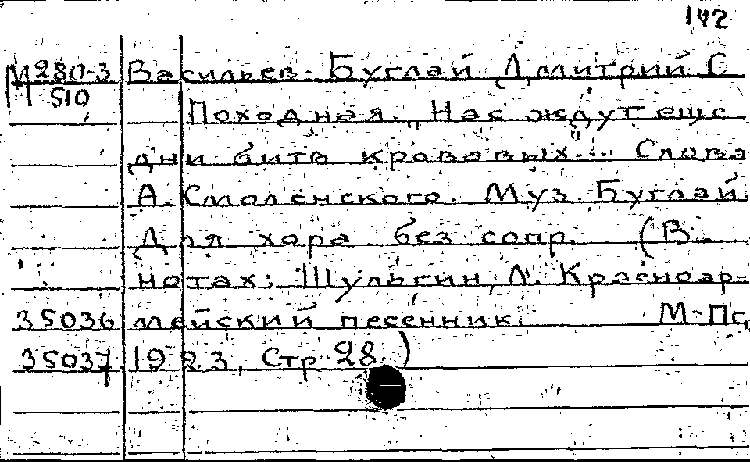 142
М280-3 Васильев-Буглай Дмитрий С
510 Походная. "Нас ждут еще
дни битв кровавых"... Слова
А. Смоленского. Муз Буглай
Для хора без сопр. (В
нотах: Шульгин, Л. Красноар-
35036 мейский песенник. М-Пг,
35037 1923, Стр 28.)